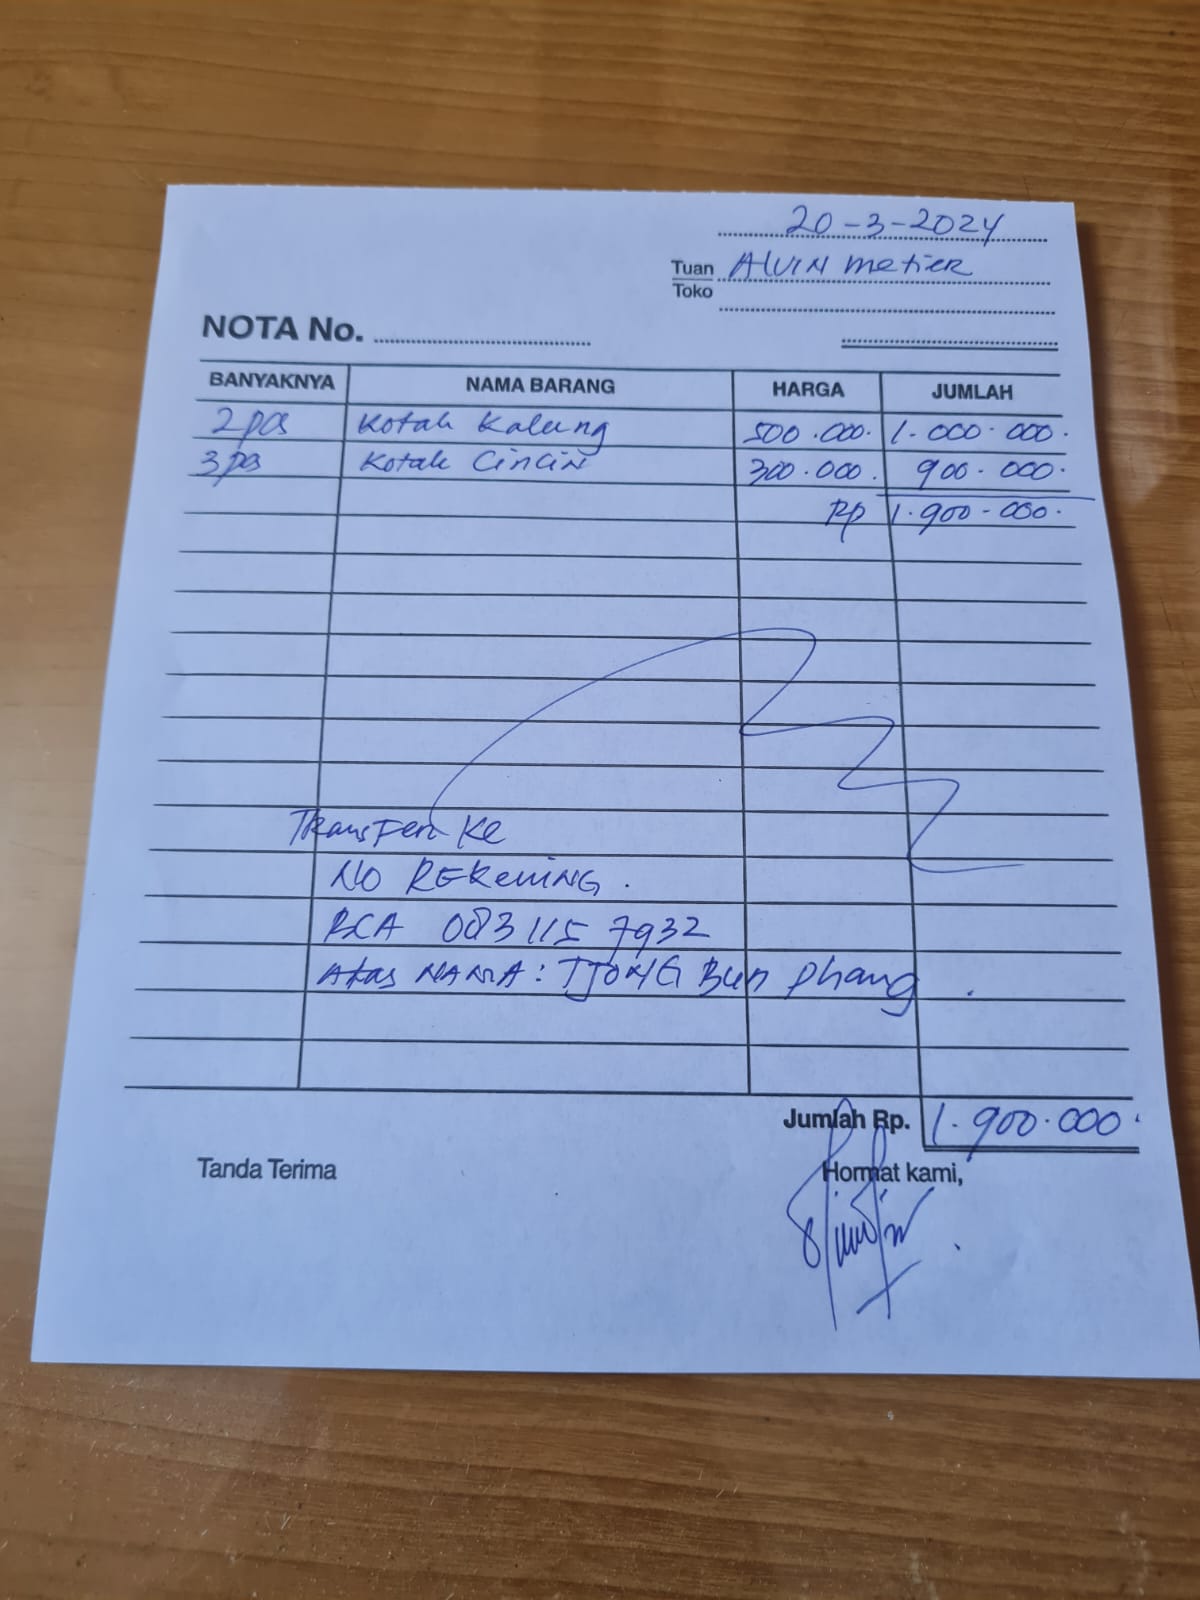 20-3-2024
Tuan Alvin Metier
Toko
NOTA No.
BANYAKNYA NAMA BARANG HARGA JUMLAH
2 pcs Kotak Kalung 500.000. 1.000.000.
3 pcs Kotak Cincin 300.000. 900.000.
Rp 1.900.000.
Transfer Ke
NO REKENING.
BCA 083 115 7932
Atas NAMA: TJONG Bun phang.
Jumlah Rp. 1.900.000.
Tanda Terima Hormat kami,